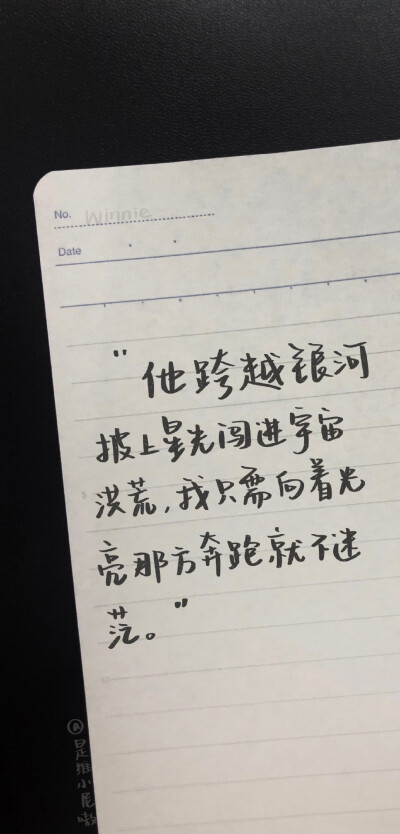 No. Winnie
Date
"他跨越银河
披上星光闯进宇宙
洪荒，我只需向着光
亮那方奔跑就不迷
茫。"